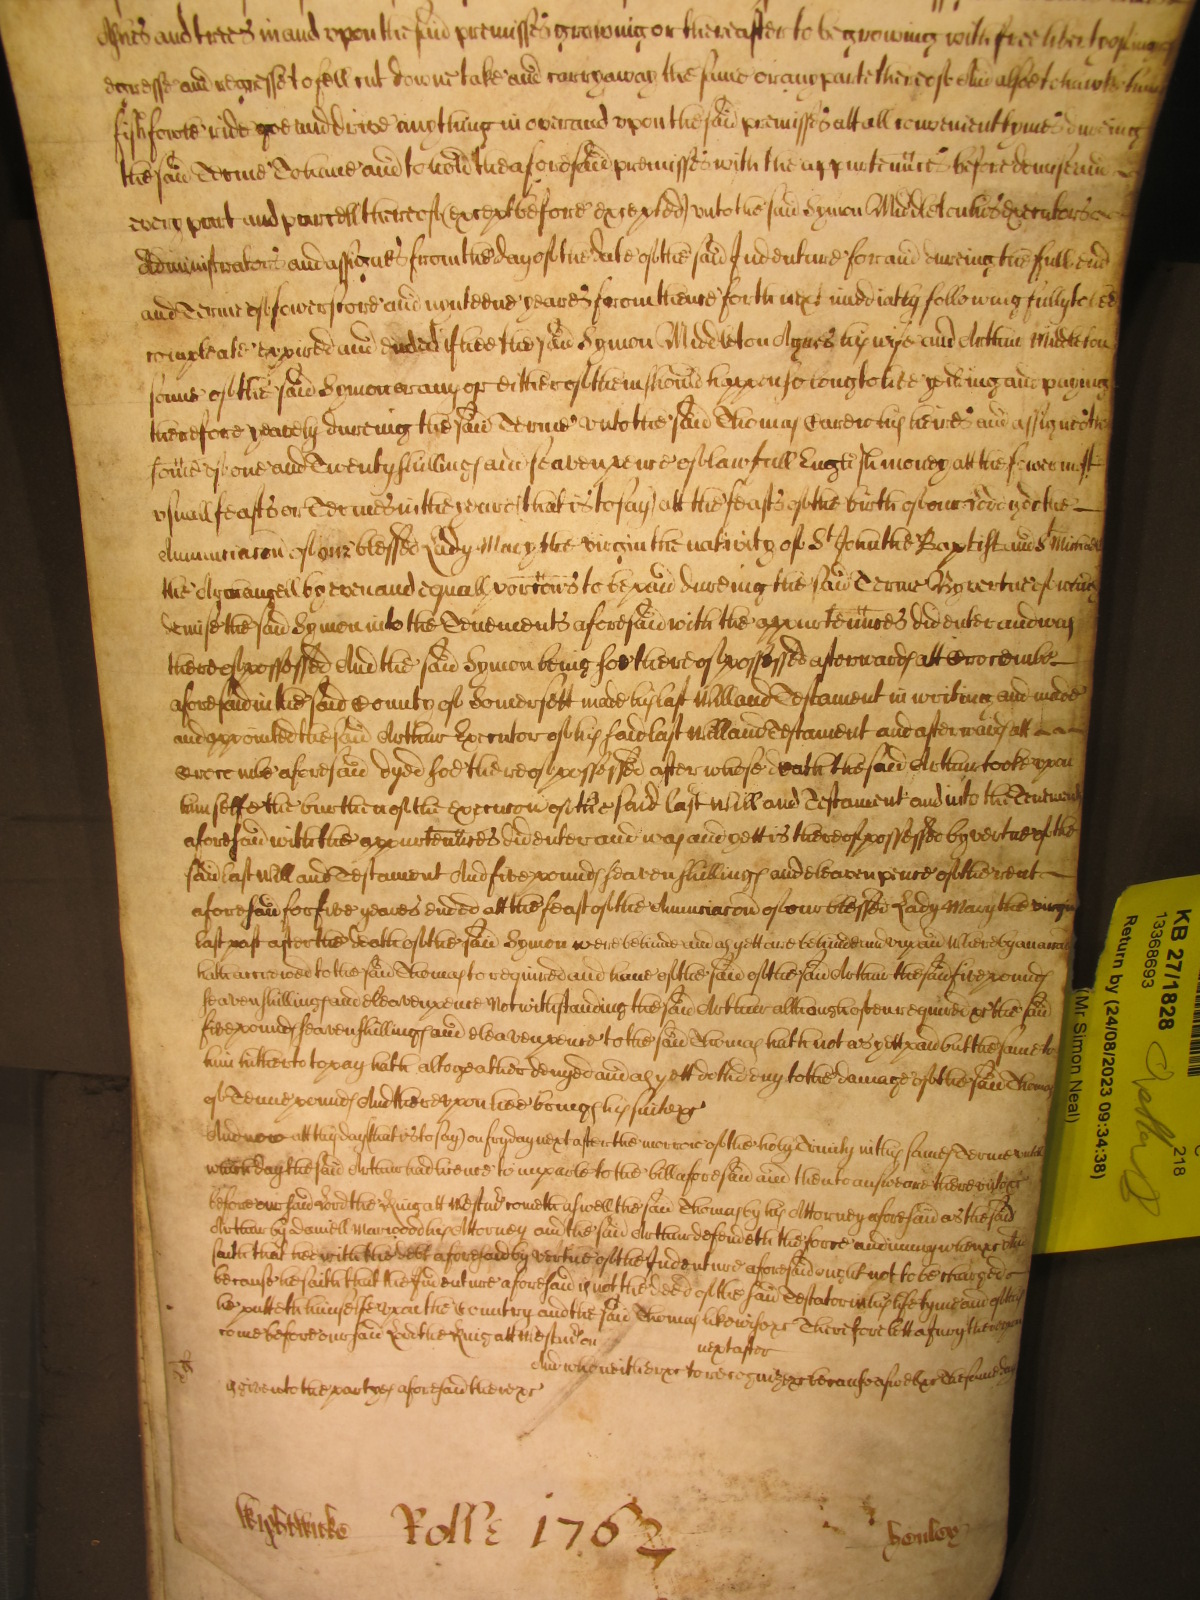 Ashes and trees in and upon the said premisses growing or thereafter to be growing with free liberty of ingresse
egresse and regresse to fell cut downe take and carry away the same or any parte thereof And alsoe to hawke hunt
fish fowle ride goe and drive any thing in over and upon the said premisses att all convenient tymes dureing
the said Terme To have and to hold the aforesaid premisses with the appurtennces before demised and
every part and parcell thereof (except before excepted) unto the said Symon Middleton his executors
Administrators and assignes from the day of the date of the said Indenture for and dureing the full end
and Terme of fowerscore and nynteene yeares from thence forth next imediatly following fully to bee
compleate expired and ended if hee the said Symon Middleton Agnes his wife and Arthur Middleton
sonne of the said Symon or any or either of them should happen so long to live yeilding and paying
therefore yearely dureing the said Terme unto the said Thomas Carew his heires and assignes the
some of one and Twenty shillings and seaven pence of lawfull English money att the fower most
usuall feasts or Termes in the yeare (that is to say) att the feasts of the birth of our Lord god the
Annunciacon of our blessed Lady Mary the virgin the nativity of St John the Baptist and St Michael
the Archangel by even and equall porcons to be paid dureing the said Terme By vertue of which
demise the said Symon into the Tenements aforesaid with the appurtennces did enter and was
thereof possessed And the said Symon being soe thereof possessed afterwards att Crocombe
aforesaid in the said County of Somersett made his last Will and Testament in writing and made
and appointed the said Arthur Executor of his said last Will and Testament and afterwards att
Crocombe aforesaid dyed soe thereof possessed after whose death the said Arthur tooke upon
himselfe the burthen of the execucon of the said last Will and Testament and into the Tenements
aforesaid with the appurtennces did enter and was and yett is thereof possessed by vertue of the
said last Will and Testament And five pounds seaven shillings and eleaven pence of the rent
aforesaid for five yeares ended att the feast of the Annunciacon of our blessed Lady Mary the virgin
last past after the death of the said Symon were behinde and as yett are behinde and unpaid Whereby an accon
hath accrewed to the said Thomas to require and have of the said Arthur the said five pounds
seaven shillings and eleaven pence Notwithstanding the said Arthur although often required &c the said
five pounds seaven shillings and eleaven pence to the said Thomas hath not as yett paid but the same to
him hitherto to pay hath altogeather denyed and as yett doth deny to the damage of the said Thomas
of Tenne pounds And thereupon hee brings his suite &c
And now att this day (that is to say) on fryday next after the morrow of the holy Trinity in this same Terme untill
which day the said Arthur had licence to imparle to the bill aforesaid and then to answeare thereunto &c
before our said Lord the King att Westmr cometh aswell the said Thomas by his Attorney aforesaid as the said
Arthur by Daniell Marwood his Attorney and the said Arthur defendeth the force and iniury when &c And
saith that hee with the debt aforesaid by vertue of the Indenture aforesaid ought not to be charged
because he saith that the Indenture aforesaid is not the deed of the said Testator in his life tyme and of this
he putteth himselfe upon the Country and the said Thomas likewise &c Therefore lett a Jury thereupon
come before our said Lord the King att Westmr on next after
And who neither &c to recognize &c because aswell &c The same day
is given to the partyes aforesaid there &c
Wightwicke Rolls 1762 Henley
KB 27/1828
13368693
Return by (24/08/2023 09:34:38)
(Mr Simon Neal)
218